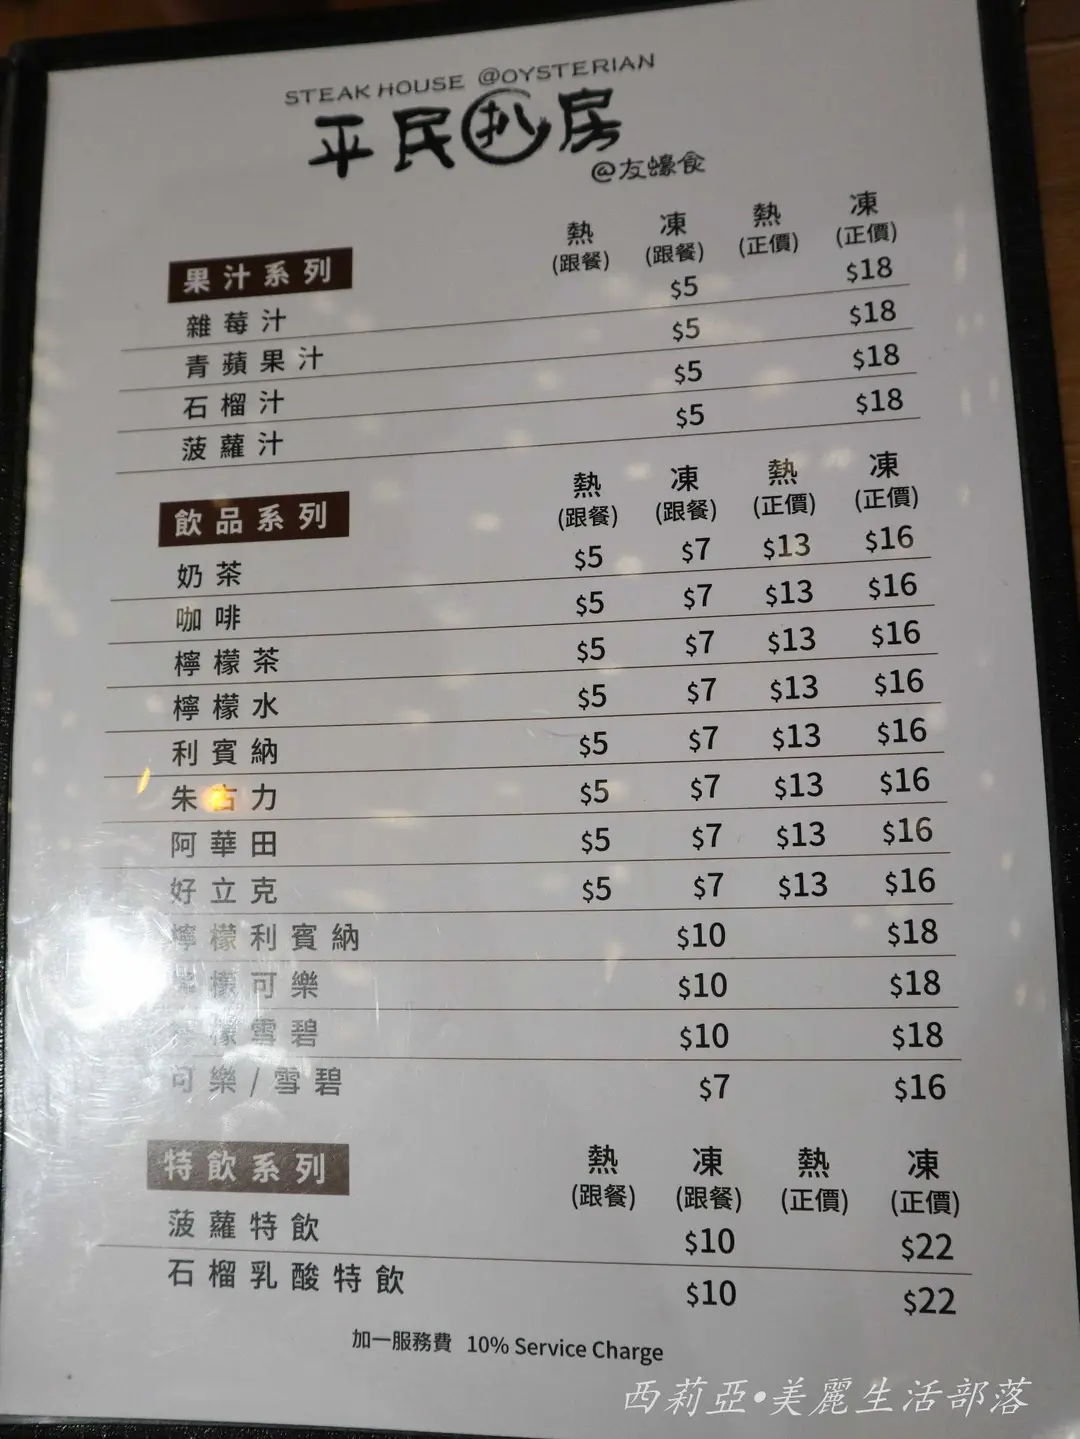 STEAK HOUSE @OYSTERIAN
平民扒房
@友蠔食
熱 凍 熱 凍
果汁系列 (跟餐) (跟餐) (正價) (正價)
雜莓汁 $5 $18
青蘋果汁 $5 $18
石榴汁 $5 $18
菠蘿汁 $5 $18
熱 凍 熱 凍
飲品系列 (跟餐) (跟餐) (正價) (正價)
奶茶 $5 $7 $13 $16
咖啡 $5 $7 $13 $16
檸檬茶 $5 $7 $13 $16
檸檬水 $5 $7 $13 $16
利賓納 $5 $7 $13 $16
朱古力 $5 $7 $13 $16
阿華田 $5 $7 $13 $16
好立克 $5 $7 $13 $16
檸檬利賓納 $10 $18
檸檬可樂 $10 $18
檸檬雪碧 $10 $18
可樂/雪碧 $7 $16
熱 凍 熱 凍
特飲系列 (跟餐) (跟餐) (正價) (正價)
菠蘿特飲 $10 $22
石榴乳酸特飲 $10 $22
加一服務費 10% Service Charge
西莉亞•美麗生活部落